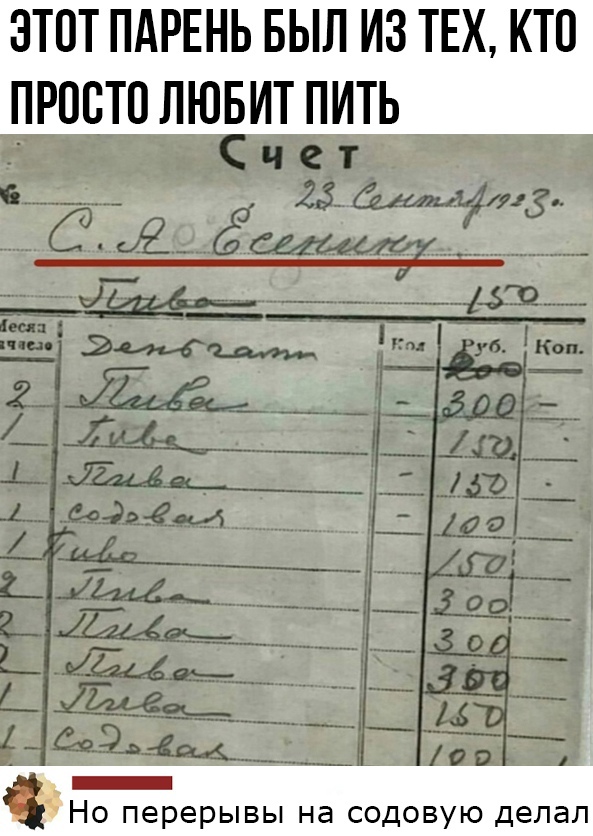 ЭТОТ ПАРЕНЬ БЫЛ ИЗ ТЕХ, КТО
ПРОСТО ЛЮБИТ ПИТЬ
Счет
№ 23 Сентяр 1923.
С. А Есенину
Пива 150
Месяц и число Деньгами Кол Руб. Коп.
200
2 Пива - 300 -
1 Пива - 150
1 Пива - 150 -
1 содовая - 100
1 Пиво 150
2 Пива 300
2 Пива 300
2 Пива 300
1 Пива 150
1 Содовая 100
Но перерывы на содовую делал